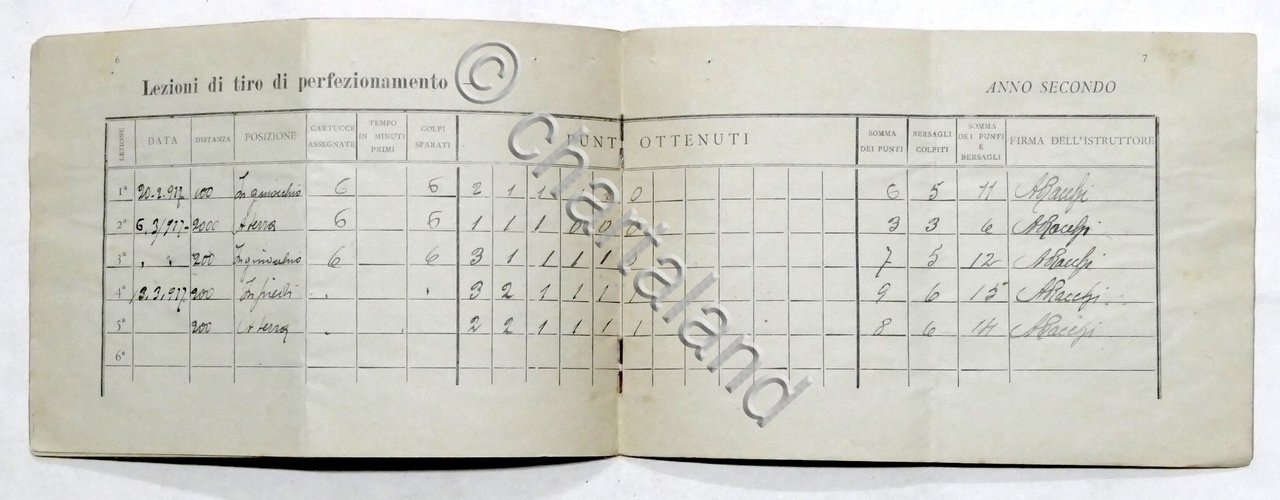 6
7
Lezioni di tiro di perfezionamento —
ANNO SECONDO
LEZIONE DATA DISTANZA POSIZIONE CARTUCCE ASSEGNATE TEMPO IN MINUTI PRIMI COLPI SPARATI PUNTI OTTENUTI SOMMA DEI PUNTI BERSAGLI COLPITI SOMMA DEI PUNTI E BERSAGLI FIRMA DELL'ISTRUTTORE
1ª 20.2.917 100 In ginocchio 6 6 2 1 1 0 0 6 5 11
2ª 6.3.917 A terra 6 6 1 1 1 0 0 0 3 3 6
3ª " " 200 In ginocchio 6 6 3 1 1 1 1 7 5 12
4ª 200 In piedi 3 2 1 1 1 1 9 6 15
5ª 200 A terra 2 2 1 1 1 1 8 6 14
6ª
© chartaland